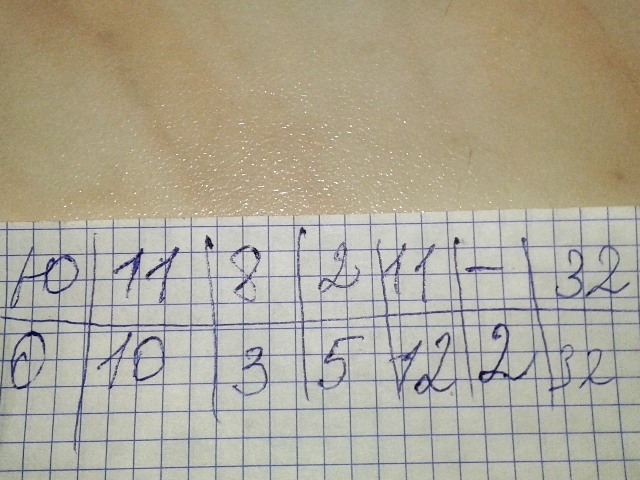 Ю 11 8 2 11 - 32
О 10 3 5 12 2 32